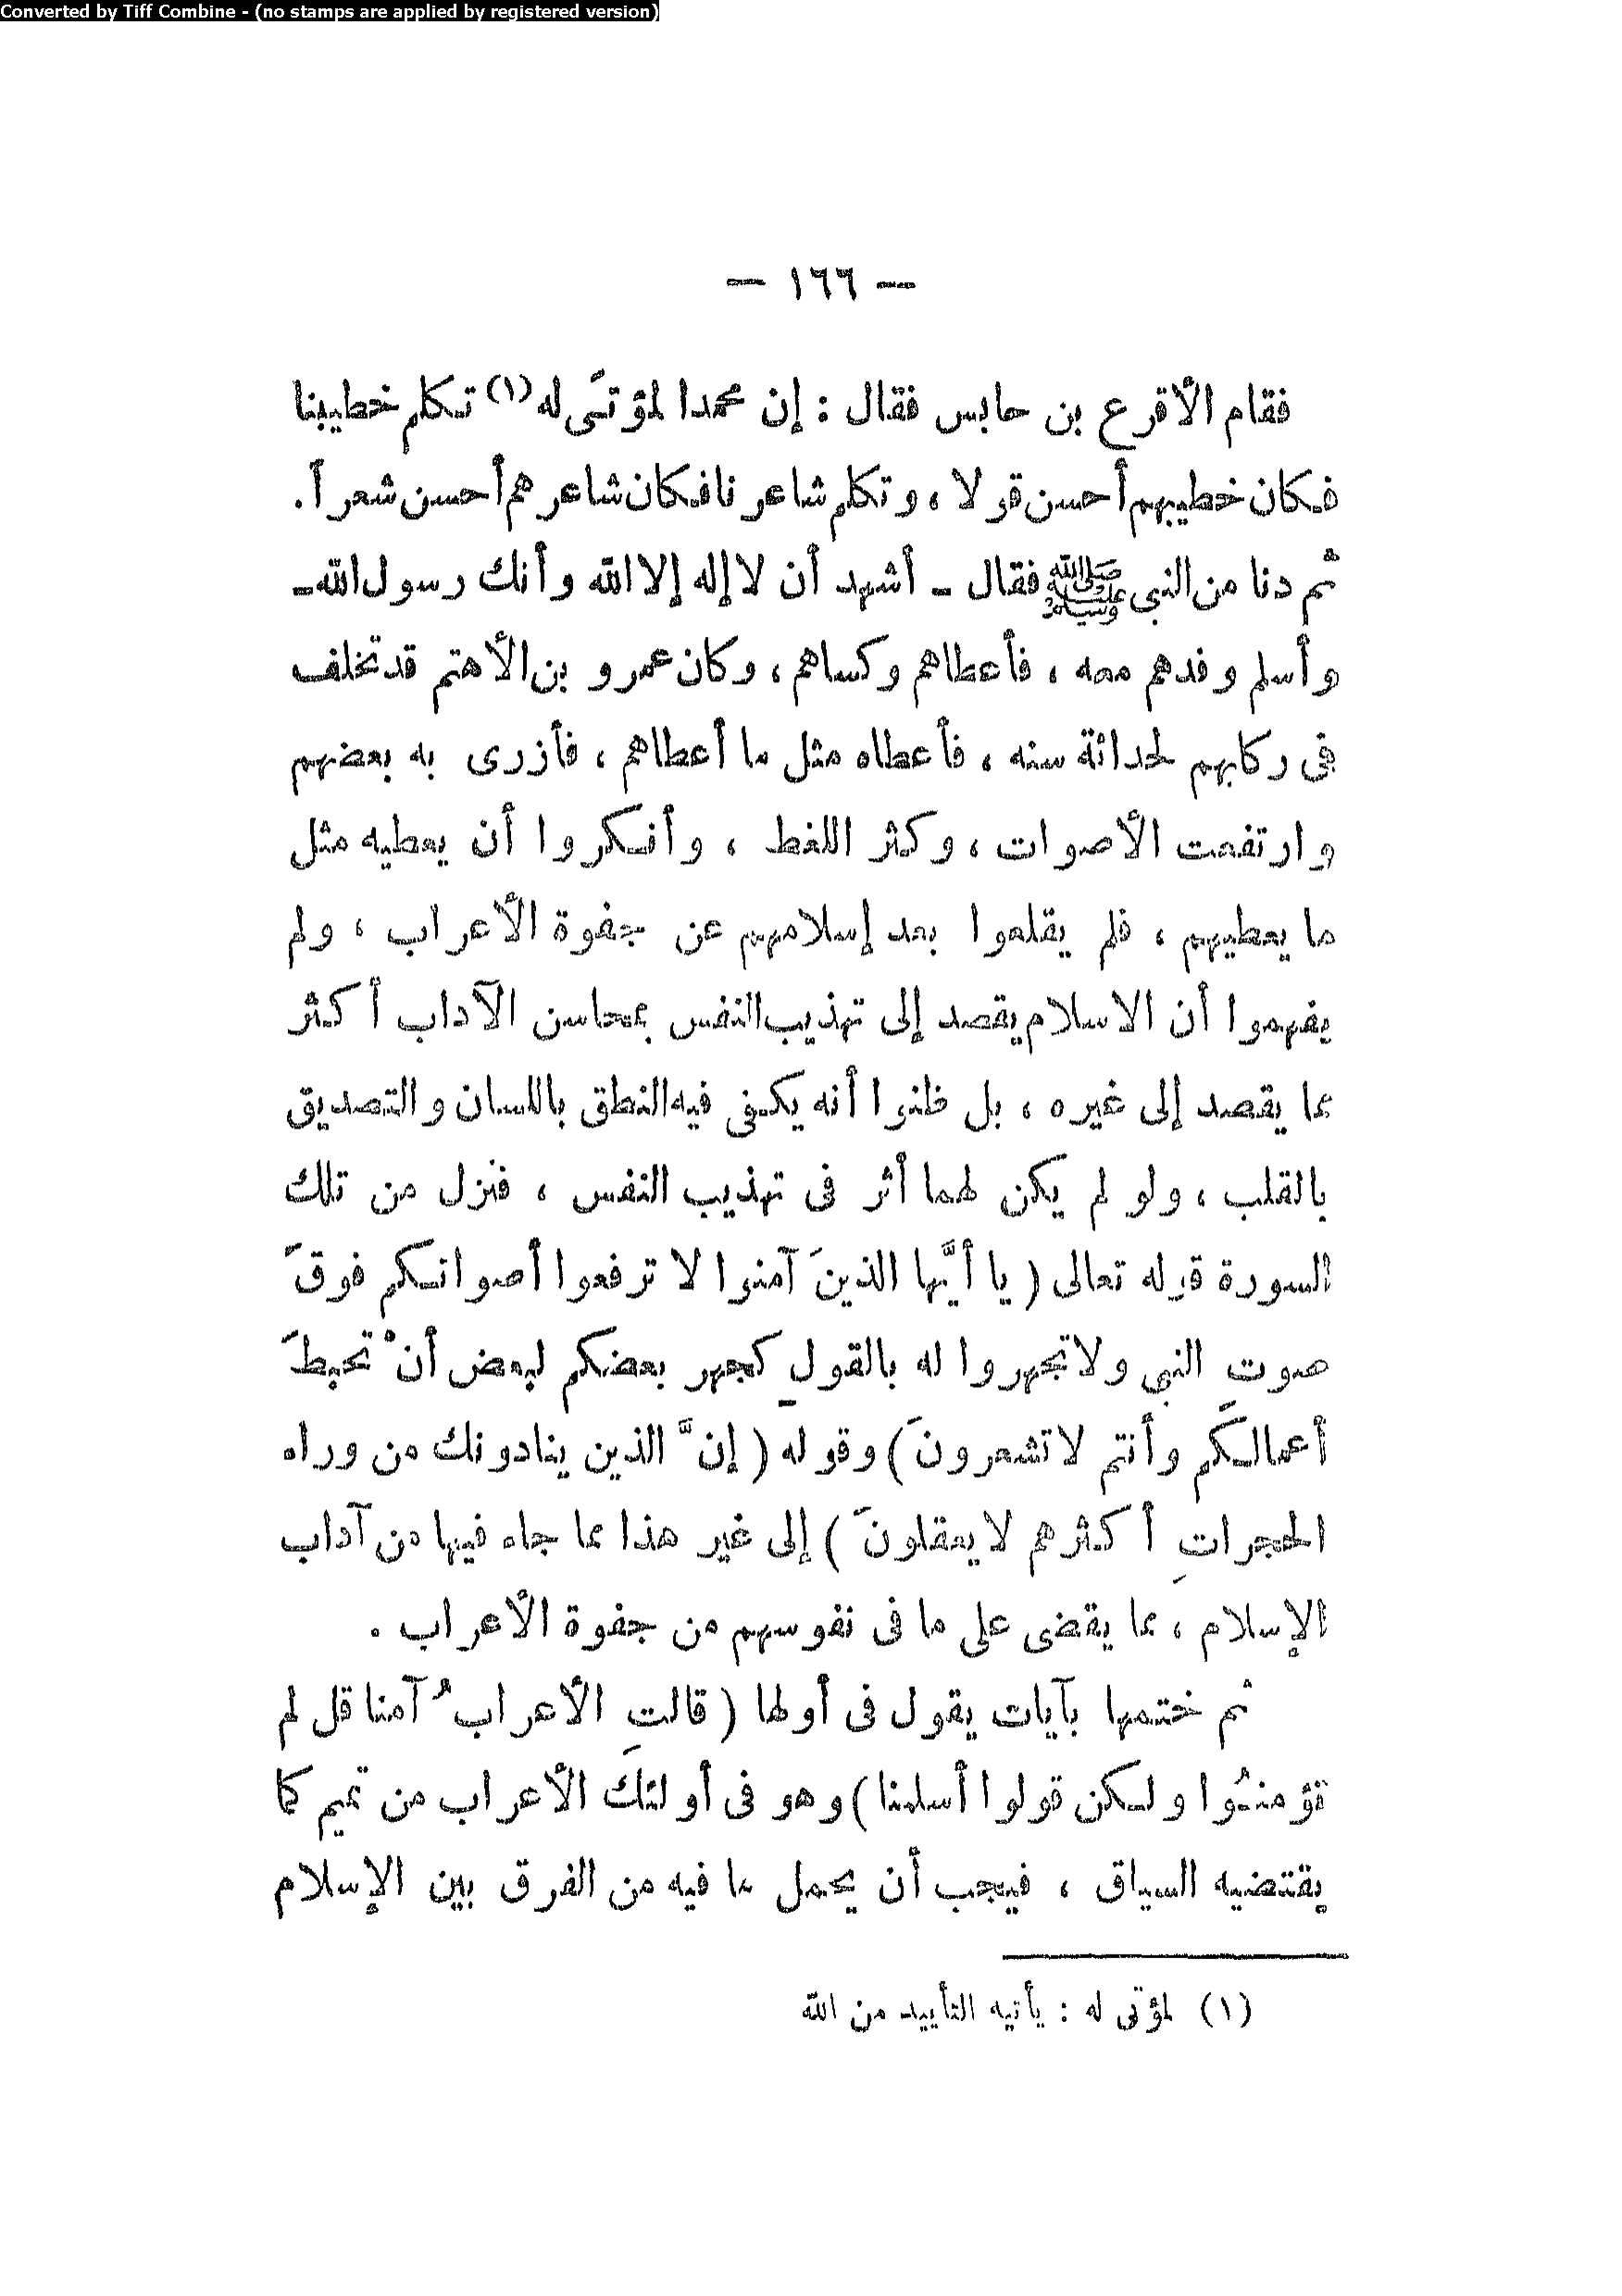 Converted by Tiff Combine - (no stamps are applied by registered version)
— ١٦٦ —
فقام الأقرع بن حابس فقال : إن محمدا لمؤتَى له (١) تكلم خطيبنا
فكان خطيبهم أحسن قولا ، وتكلم شاعرنا فكان شاعرهم أحسن شعراً .
ثم دنا من النبى ﷺ فقال - أشهد أن لا إله إلا الله وأنك رسول الله -
وأسلم وفدهم معه ، فأعطاهم وكساهم ، وكان عمرو بن الأهتم قد تخلف
فى ركابهم لحداثة سنه ، فأعطاه مثل ما أعطاهم ، فأزرى به بعضهم
وارتفعت الأصوات ، وكثر اللغط ، وأنكروا أن يعطيه مثل
ما يعطيهم ، فلم يقلعوا بعد إسلامهم عن جفوة الأعراب ، ولم
يفهموا أن الاسلام يقصد إلى تهذيب النفس بمحاسن الآداب أكثر
مما يقصد إلى غيره ، بل ظنوا أنه يكفى فيه النطق باللسان والتصديق
بالقلب ، ولو لم يكن لهما أثر فى تهذيب النفس ، فنزل من تلك
السورة قوله تعالى ( يا أيَّها الذينَ آمنوا لا ترفعوا أصواتكم فوقَ
صوتِ النبى ولا تجهروا له بالقولِ كجهر بعضكم لبعض أنْ تحبطَ
أعمالكم وأنتم لا تشعرونَ ) وقوله ( إنَّ الذين ينادونك من وراء
الحجراتِ أكثرهم لا يعقلونَ ) إلى غير هذا مما جاء فيها من آداب
الإسلام ، مما يقضى على ما فى نفوسهم من جفوة الأعراب .
ثم ختمها بآيات يقول فى أولها ( قالتِ الأعرابُ آمنا قل لم
تؤمنُوا ولكن قولوا أسلمنا ) وهو فى أولئك الأعراب من تميم كما
يقتضيه السياق ، فيجب أن يحمل ما فيه من الفرق بين الإسلام
(١) لمؤتى له : يأتيه التأييد من الله